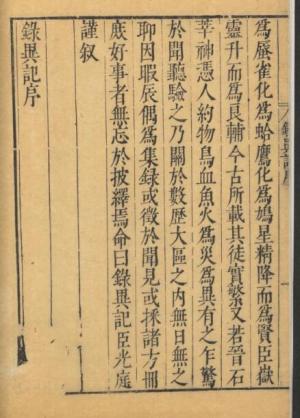 為蜃雀化為蛤鷹化為鳩星精降而為賢臣嶽
靈升而為良輔今古所載其徒實繁又若晉石
莘神憑人約物鳥血魚火為災為異有之乍驚
於聞聽驗之乃關於數歷大區之內無日無之
聊因暇辰偶為集錄或徵於聞見或採諸方冊
庶好事者無忘於披繹焉命曰錄異記臣光庭
謹叙
錄異記序